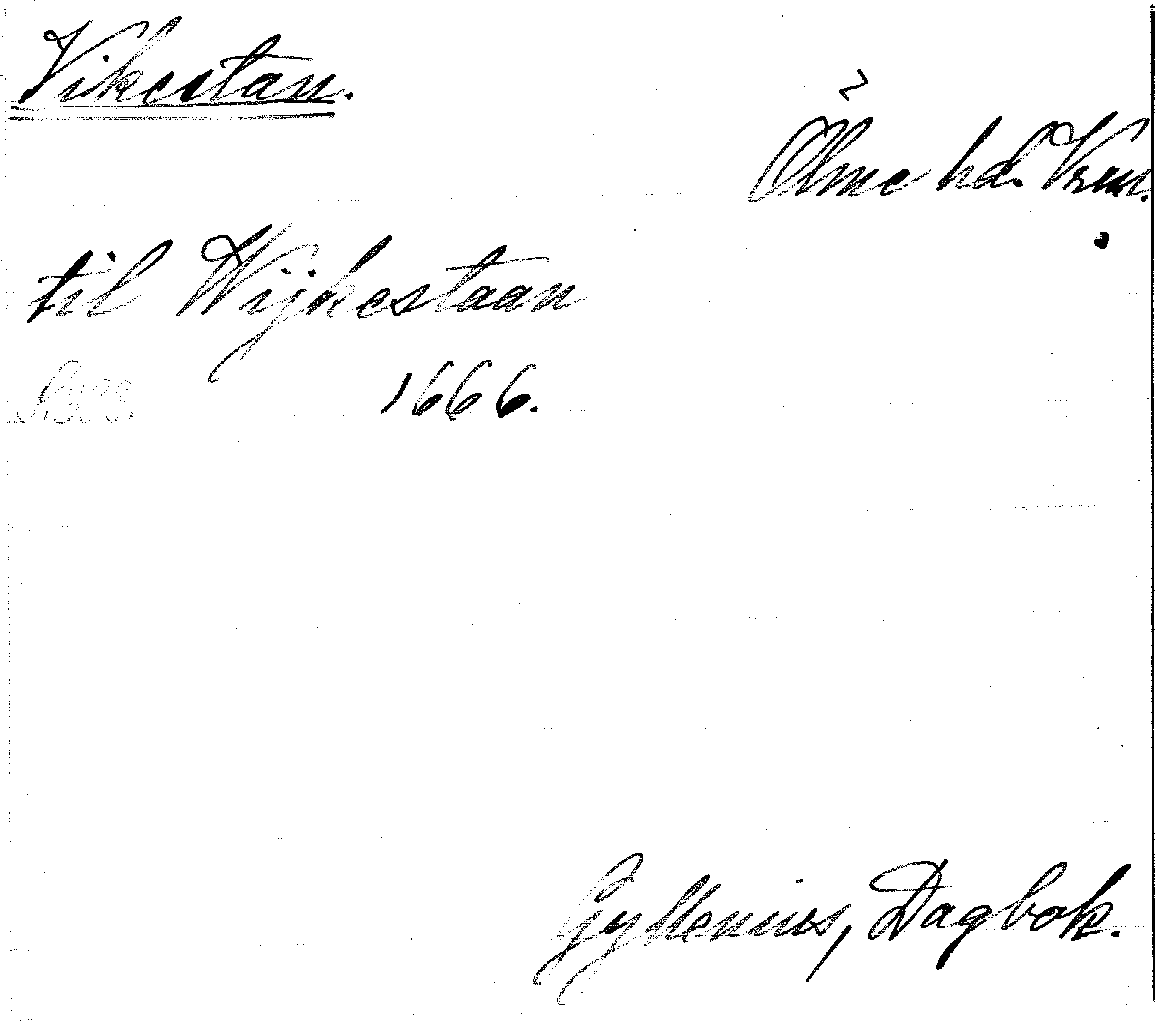 Vikestan.
Ölme hd. Vrm.
til Wijkestaan
1666.
Gyllenius, Dagbok.